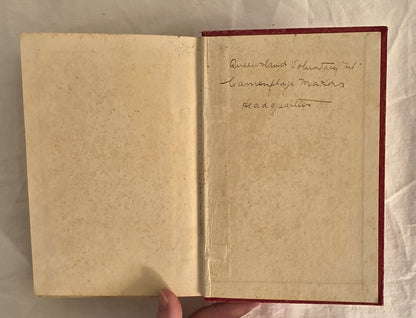 Queensland Voluntary Net
Camouflage Makers
Headquarters